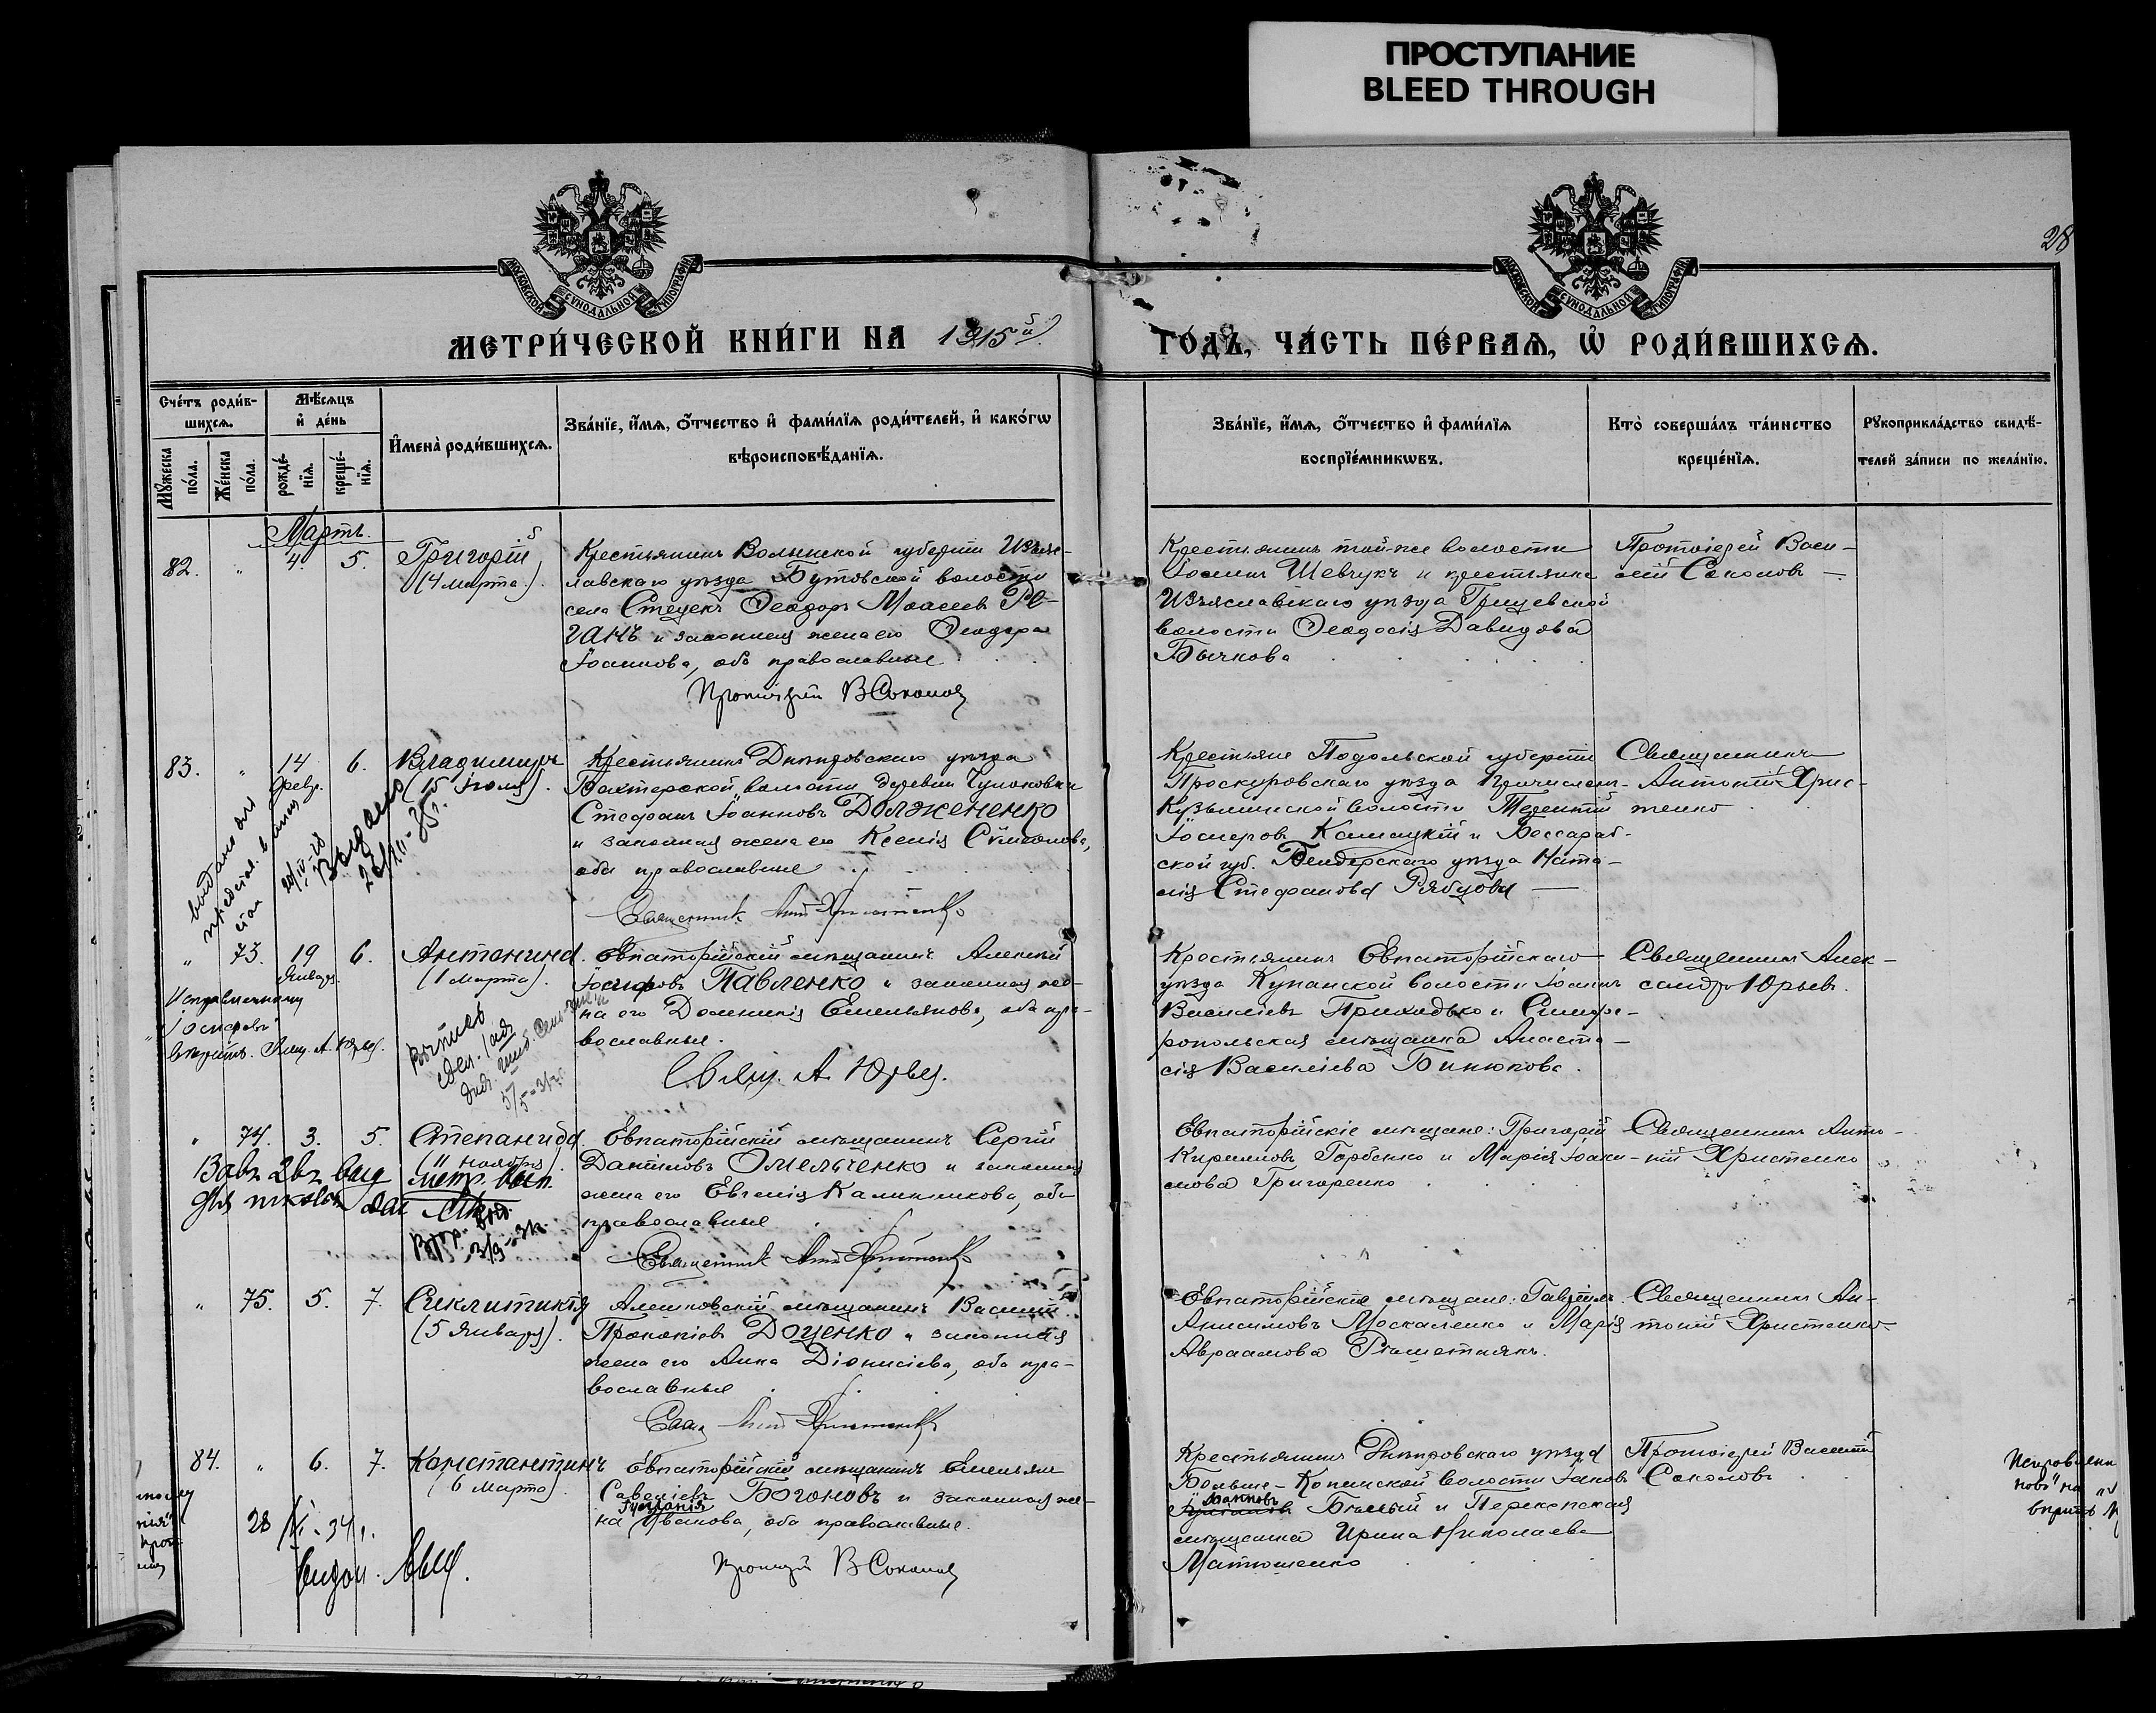 ПРОСТУПАНИЕ
BLEED THROUGH
28
МОСКОВСКОЙ СѴНОДАЛЬНОЙ ТИПОГРАФІИ
МОСКОВСКОЙ СѴНОДАЛЬНОЙ ТИПОГРАФІИ
МЕТРИ́ЧЕСКОЙ КНИ́ГИ НА 1915й
ГО́ДЪ, ЧА́СТЬ ПЕ́РВАѦ, Ѡ҆ РОДИ́ВШИХСѦ.
Сче́тъ роди́в-
шихсѧ.
Мꙋ́жеска по́ла.
Же́нска по́ла.
Мѣ́сѧцъ
и҆ де́нь
рожде́-
нїѧ.
креще́-
нїѧ.
И҆мена̀ роди́вшихсѧ.
Зва́нїе, и҆́мѧ, ѻ҆́тчество и҆ фами́лїѧ роди́телей, и҆ како́гѡ
вѣроисповѣ́данїѧ.
Зва́нїе, и҆́мѧ, ѻ҆́тчество и҆ фами́лїѧ
воспрїе́мникѡвъ.
Кто̀ соверша́лъ та́инство
креще́нїѧ.
Рꙋкоприкла́дство свидѣ́-
телей за́писи по жела́нїю.
Мартъ.
82. " 4. 5. Григорій
(4 марта).
Крестьянинъ Волынской губерніи Изъяс-
лавскаго уѣзда Бутовской волости
села Стецекъ Ѳеодоръ Моисеевъ
и законная жена его Ѳеодора
Іоаннова, оба православные
Протоіерей В Соколовъ
Крестьянинъ той-же волости
Іоаннъ Шевчукъ и крестьянка
Изъяславскаго уѣзда Грицевской
волости Ѳеодосія Давидова
Бычкова
Протоіерей Васи-
лій Соколовъ
83. " 14 Февр. 6. Владимиръ
(15 іюля).
Крестьянинъ Днѣпровскаго уѣзда
Бахтерской волости деревни Чулаковки
Стефанъ Іоанновъ Должененко
и законная жена его Ксенія Сѵмеонова,
оба православные
Священникъ Ант Христенко
Крестьяне Подольской губерніи
Проскуровскаго уѣзда
Кузьминской волости Терентій
Іосифовъ Камацкій и Бессараб-
ской губ. Бендерскаго уѣзда Ната-
лія Стефанова Рябцова
Священникъ
Антоній Хрис-
тенко
выдано для
20/IV-28
Выдано
" 73. 19 Январ. 6. Антонина
(1 марта).
Евпаторійскій мѣщанинъ Алексій
Іосифовъ Павленко и законная же-
на его Домникія Емельянова, оба пра-
вославные.
Свящ. А. Юрьевъ.
Крестьянинъ Евпаторійскаго
уѣзда Кунанской волости Іоаннъ
Василіевъ Приходько и Симфе-
ропольская мѣщанка Анаста-
сія Василіева Бинюкова.
Священникъ Алек-
сандръ Юрьевъ.
Исправленному
"Іосифовъ"
вѣрить. Свящ. А. Юрьевъ.
Выпись
" 74. 3. 5. Степанида
(11 ноября).
Евпаторійскій мѣщанинъ Сергій
Даніиловъ Омельченко и законная
жена его Евгенія Калинникова, оба
православные
Священникъ Ант Христенко
Евпаторійскіе мѣщане: Григорій
Кирилловъ Горбенко и Марія Іоаки-
мова Григоренко
Священникъ Анто-
ній Христенко
" 75. 5. 7. Сиклитикія
(5 января).
Алешковскій мѣщанинъ Василій
Прокопіевъ Доценко и законная
жена его Анна Діонисіева, оба пра-
вославные
Свящ Ант Христенко
Евпаторійскіе мѣщане: Гавріилъ
Анисимовъ Москаленко и Марія
Авраамова Решетнякъ.
Священникъ Ан-
тоній Христенко
84. " 6. 7. Константинъ
(6 марта).
Евпаторійскій мѣщанинъ Емельянъ
Савеліевъ Богоновъ и законная же-
на Іустинія Иванова, оба православные.
Протоіерей В Соколовъ
Крестьянинъ Днѣпровскаго уѣзда
Больше-Копанской волости Іаковъ
Іоанновъ Бѣлый и Перекопская
мѣщанка Ирина Николаева
Матюшенко
Протоіерей Василій
Соколовъ
28